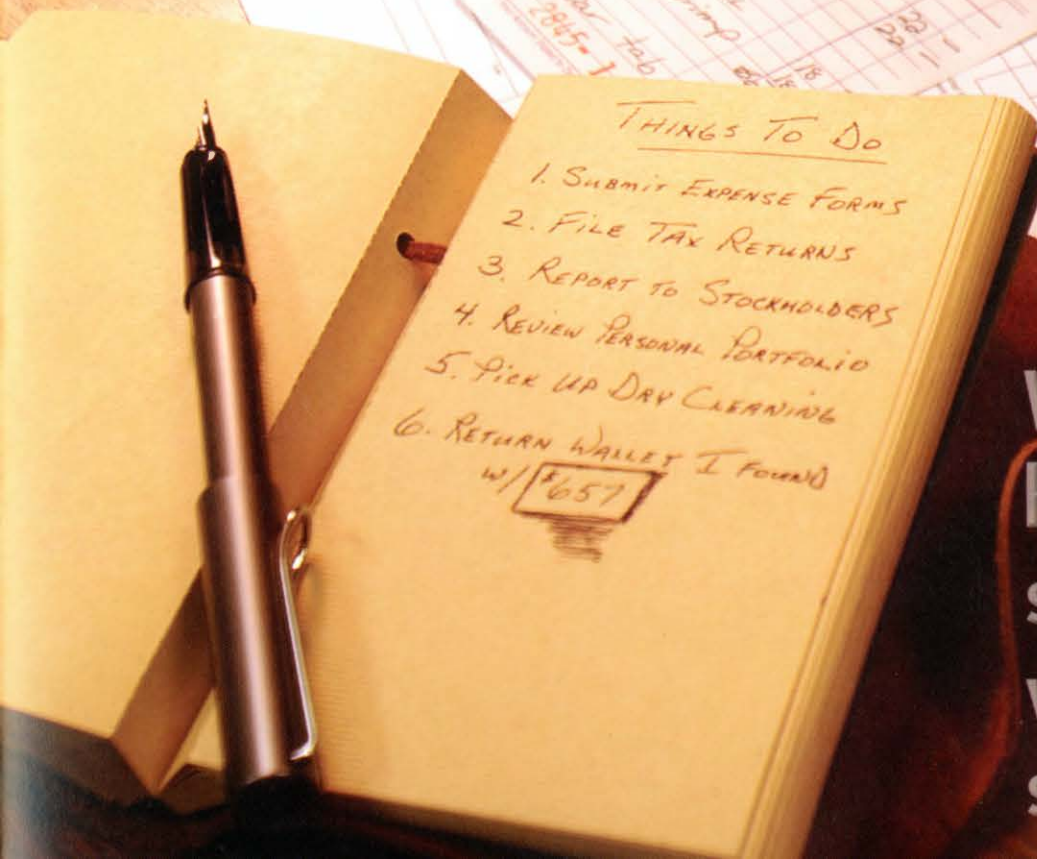 bar tab
2845-
18
22 -
22 -
THINGS TO DO
1. SUBMIT EXPENSE FORMS
2. FILE TAX RETURNS
3. REPORT TO STOCKHOLDERS
4. REVIEW PERSONAL PORTFOLIO
5. PICK UP DRY CLEANING
6. RETURN WALLET I FOUND
W/ $657